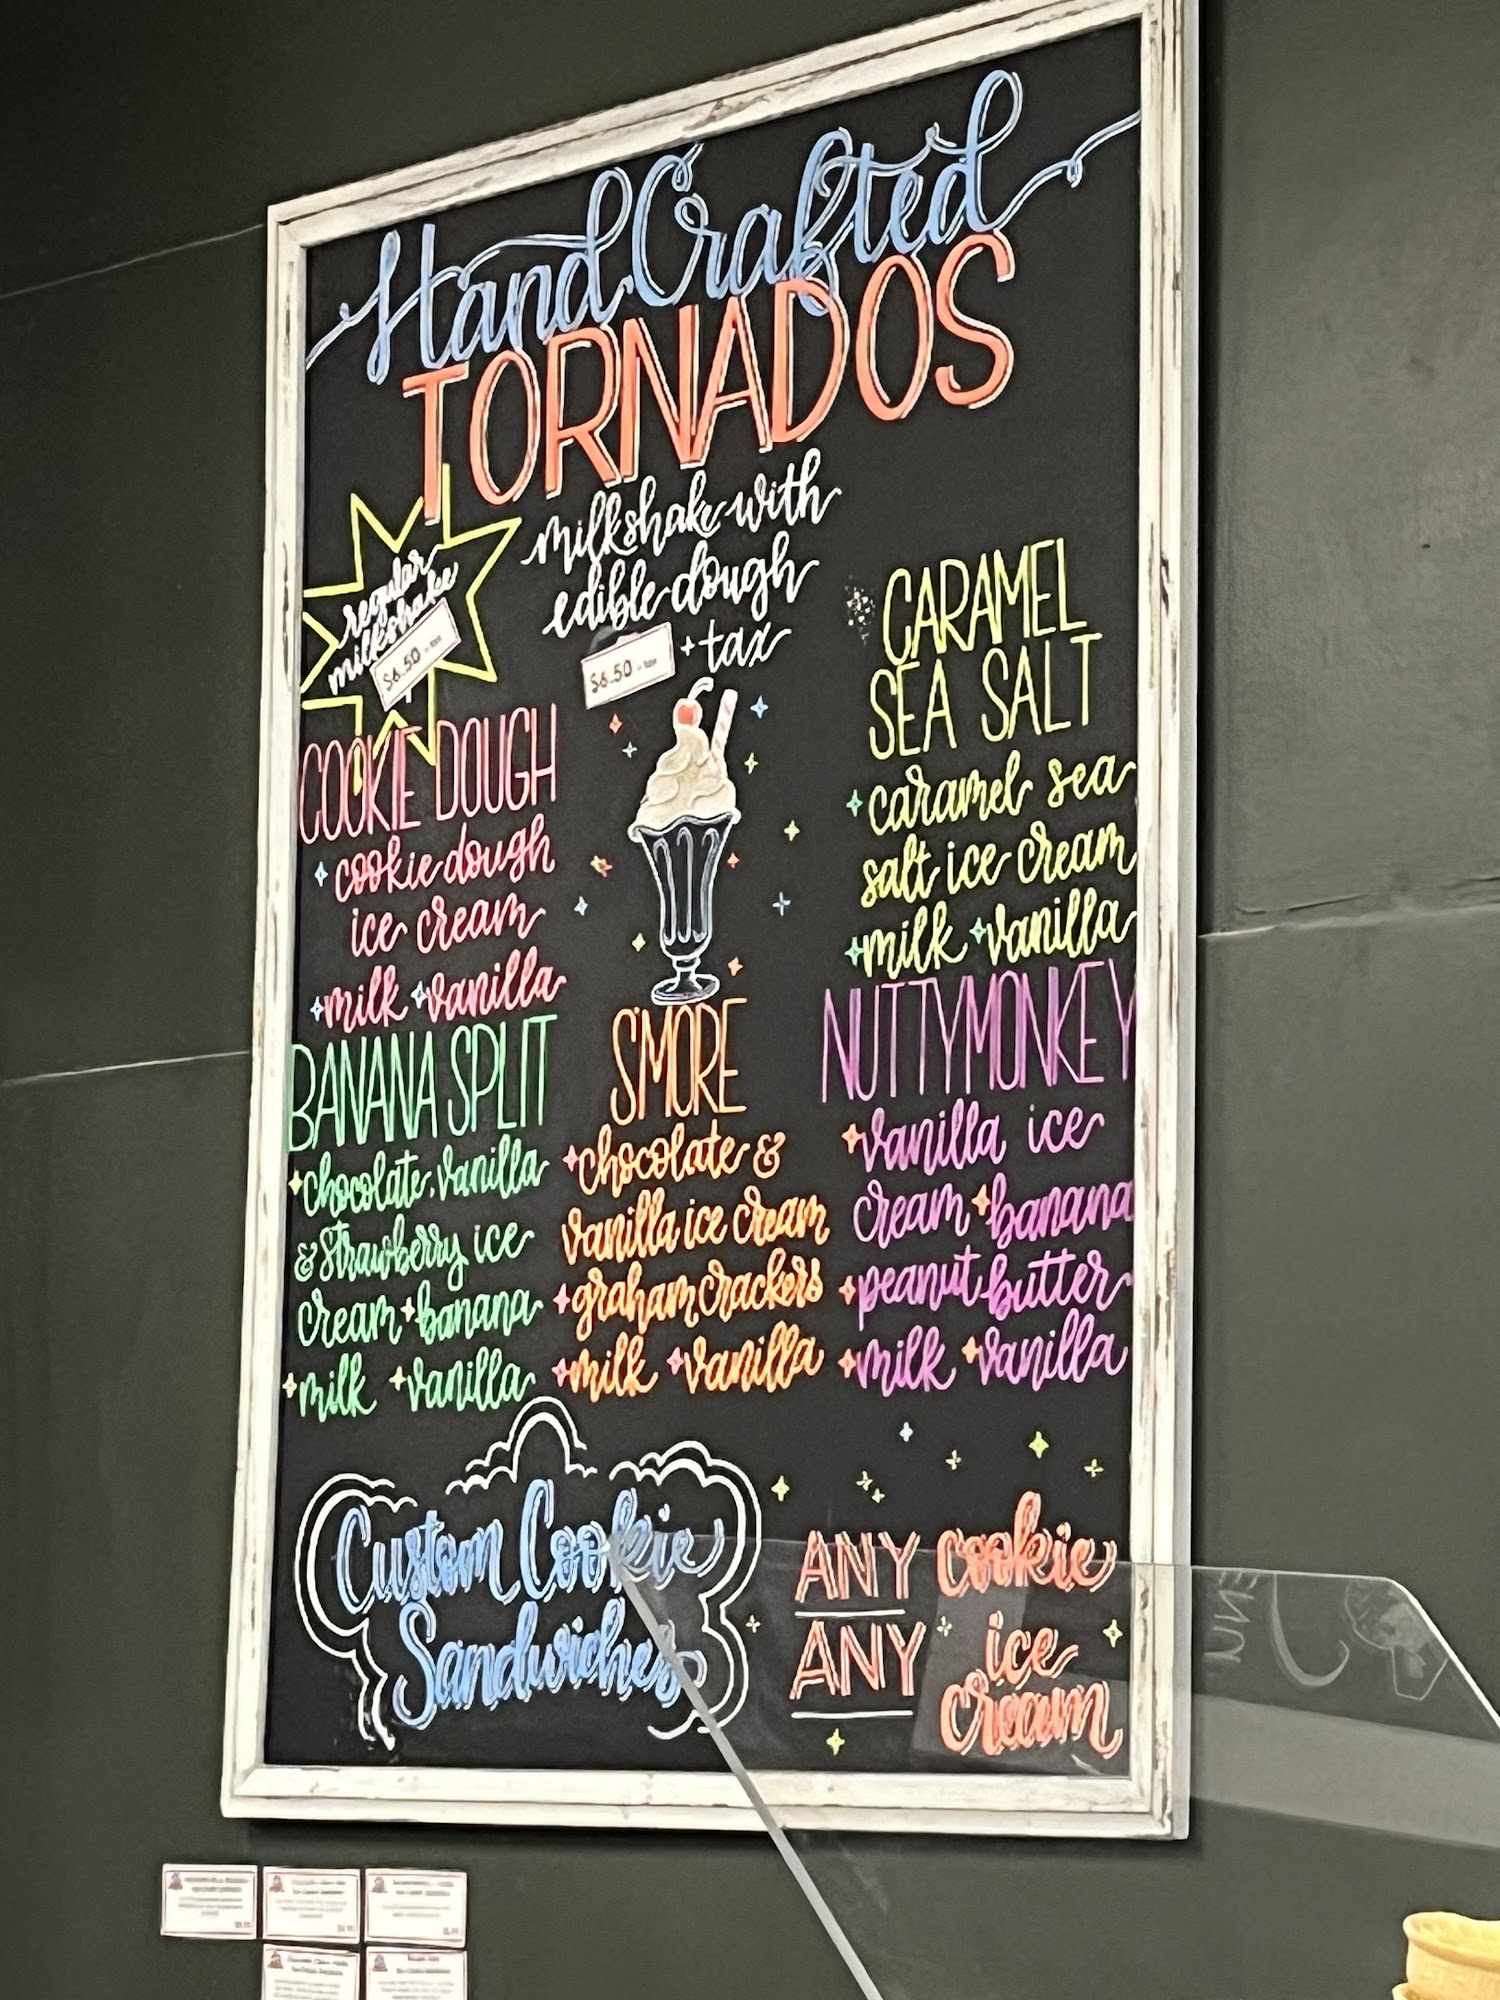 Hand Crafted
TORNADOS
regular
milkshake
$6.50
milkshake with
edible dough
$6.50
+ tax
COOKIE DOUGH
cookie dough
ice cream
milk vanilla
CARAMEL
SEA SALT
caramel sea
salt ice cream
milk vanilla
BANANA SPLIT
chocolate, vanilla
& strawberry ice
cream banana
milk vanilla
S'MORE
chocolate &
vanilla ice cream
graham crackers
milk vanilla
NUTTY MONKEY
vanilla ice
cream banana
peanut butter
milk vanilla
Custom Cookie
Sandwiches
ANY cookie
ANY ice
cream